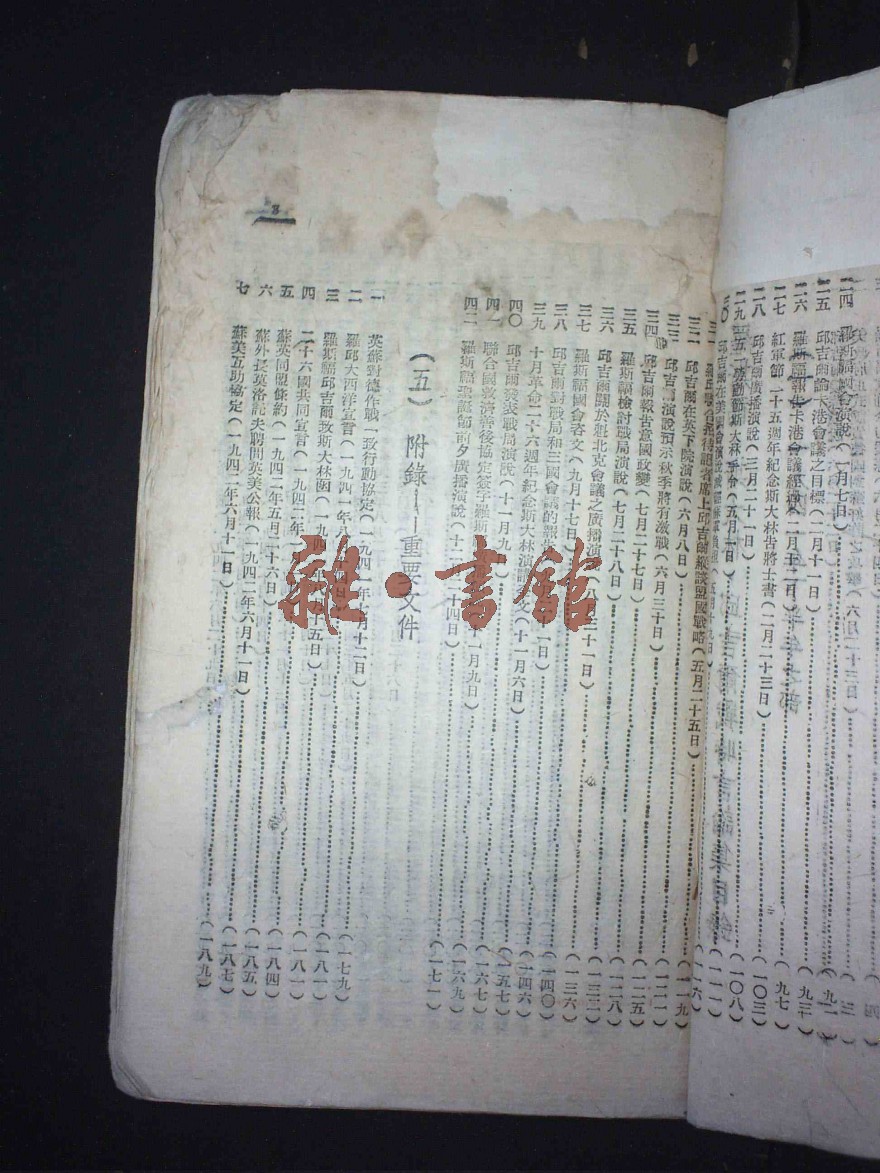 二四 羅斯福國會演說(一月七日)
二五 邱吉爾論卡港會議之目標(二月十一日)(九一)
二六 羅斯福報告卡港會議經過(二月十二日)(九三)
二七 紅軍節二十五週年紀念斯大林告將士書(二月二十三日)(九七)
二八 邱吉爾廣播演說(三月二十一日)(一〇三)
二九 五一勞動節斯大林手令(五月一日)(一〇八)
三〇 邱吉爾在美國會演說
三一 邱吉爾縱談盟國戰略(五月二十五日)(一一六)
三二 邱吉爾在英下院演說(六月八日)(一一九)
三三 邱吉爾演說預示秋季將有激戰(六月三十日)
三四 邱吉爾報告意國政變(七月二十七日)(一二五)
三五 羅斯福檢討戰局演說(七月二十八日)(一二八)
三六 邱吉爾關於魁北克會議之廣播演(八月三十一日)(一三二)
三七 羅斯福國會咨文(九月十七日)(一三六)
三八 邱吉爾對戰局和三國會議的報告(一四〇)
三九 十月革命二十六週年紀念斯大林演說文(十一月六日)(一四六)
四〇 邱吉爾發表戰局演說(十一月九(一五七)
四一 聯合國救濟善後協定簽字羅斯十一月九日)(一六七)
四二 羅斯福聖誕節前夕廣播演說(十二十四日)(一六九)
(五) 附錄——重要文件(一七一)
一 英蘇對德作戰一致行動協定(一九四一年七月十二日)(一七九)
二 羅邱大西洋宣言(一九四一年八(一八一)
三 羅斯福邱吉爾致斯大林函(一九四年八月十五日)(一八一)
四 二十六國共同宣言(一九四二年一(一八四)
五 蘇英同盟條約(一九四二年五月二十六日)(一八五)
六 蘇外長莫洛託夫聘問英美公報(一九四二年六月十一日)(一八七)
七 蘇美互助協定(一九四二年六月十一日)(一八九)
8
雜·書館